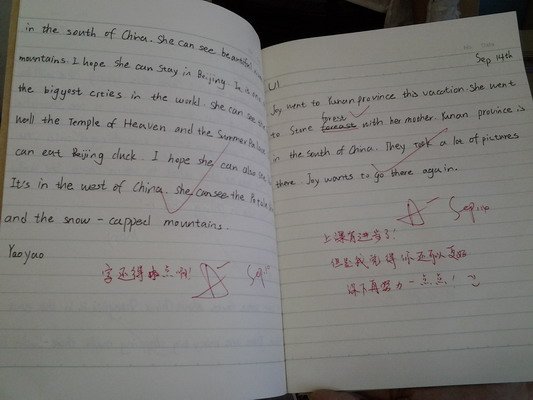 in the south of China. She can see beautiful
mountains. I hope she can stay in Beijing. It is one
the biggest cities in the world. She can see the
wall the Temple of Heaven and the Summer Palace
can eat Beijing duck. I hope she can also
It's in the west of China. She can see the Potala
and the snow-capped mountains.
Yaoyao
字还得 点啊!
A-
Sep 14th
U1
Joy went to Yunan province this vacation. She went
forest
to Stone with her mother. Yunan province is
in the south of China. They took a lot of pictures
there. Joy wants to go there again.
A-
上课有进步了!
但是我觉得你还可以更好
课下再努力一点点!